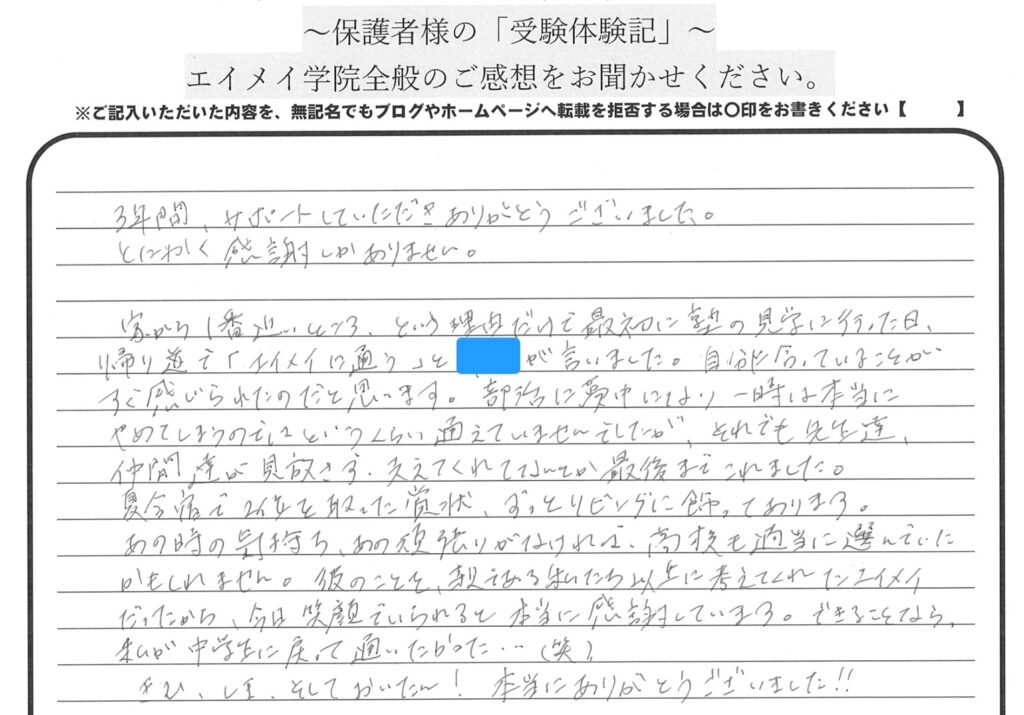 ～保護者様の「受験体験記」～
エイメイ学院全般のご感想をお聞かせください。
※ご記入いただいた内容を、無記名でもブログやホームページへ転載を拒否する場合は〇印をお書きください【　　　】
3年間、サポートしていただきありがとうございました。
とにかく感謝しかありません。
家から1番近いところ、という理由だけで最初に塾の見学に行った日、
帰り道で「エイメイに通う」と が言いました。自分に合っていることが
すぐ感じられたのだと思います。部活に夢中になり一時は本当に
やめてしまうのでは?というくらい通えていませんでしたが、それでも先生達、
仲間達が見放さず、支えてくれてなんとか最後までこれました。
夏合宿で2位を取った賞状、ずっとリビングに飾ってあります。
あの時の気持ち、あの頑張りがなければ、高校も適当に選んでいた
かもしれません。彼のことを、親である私たち以上に考えてくれたエイメイ
だったから、今日笑顔でいられると本当に感謝しています。できることなら、
私が中学生に戻って通いたかった…(笑)
そしておいたん! 本当にありがとうございました!!